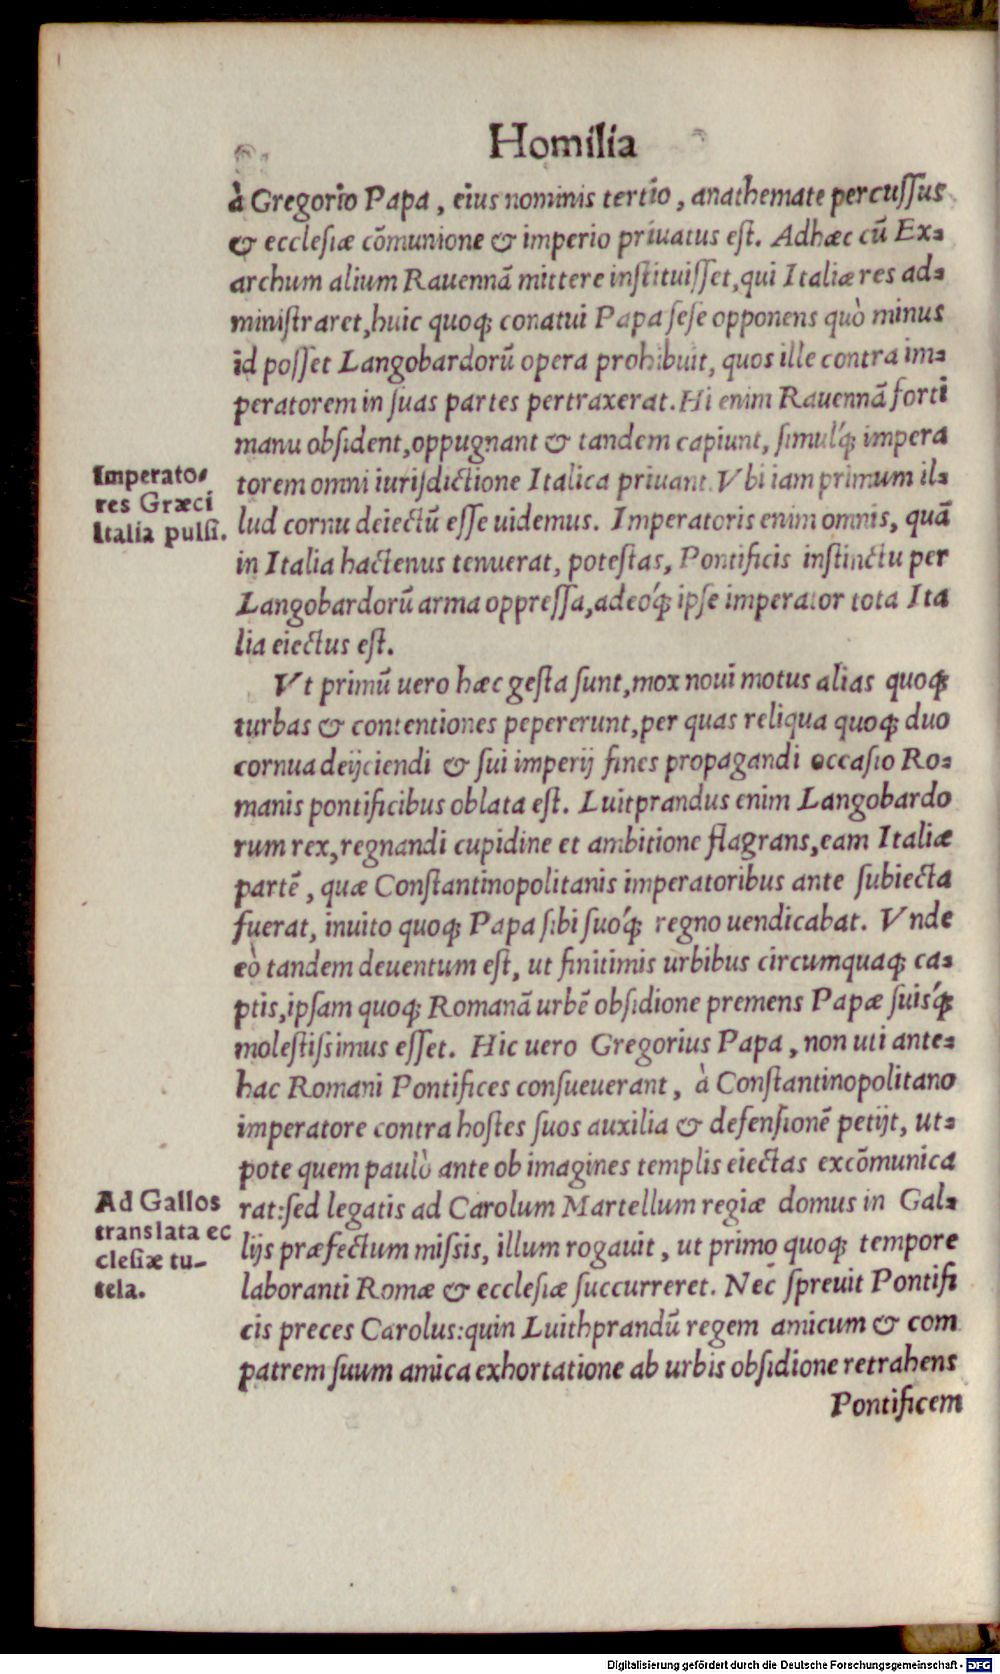 Homilia
à Gregorio Papa, eius nominis tertio, anathemate percussus
& ecclesiæ cõmunione & imperio priuatus est. Adhæc cũ Ex⸗
archum alium Rauennã mittere instituisset, qui Italiæ res ad⸗
ministraret, huic quoq; conatui Papa sese opponens quò minus
id posset Langobardorũ opera prohibuit, quos ille contra im⸗
peratorem in suas partes pertraxerat. Hi enim Rauennã forti
manu obsident, oppugnant & tandem capiunt, simulq́; impera
torem omni iurisdictione Italica priuant. Vbi iam primum il⸗
lud cornu deiectũ esse uidemus. Imperatoris enim omnis, quã
in Italia hactenus tenuerat, potestas, Pontificis instinctu per
Langobardorũ arma oppressa, adeoq́; ipse imperator tota Ita
lia eiectus est.
Imperato⸗
res Græci
Italia pulsi.
Vt primũ uero hæc gesta sunt, mox noui motus alias quoq;
turbas & contentiones pepererunt, per quas reliqua quoq; duo
cornua deijciendi & sui imperij fines propagandi occasio Ro⸗
manis pontificibus oblata est. Luitprandus enim Langobardo
rum rex, regnandi cupidine et ambitione flagrans, eam Italiæ
partẽ, quæ Constantinopolitanis imperatoribus ante subiecta
fuerat, inuito quoq; Papa sibi suoq́; regno uendicabat. Vnde
eò tandem deuentum est, ut finitimis urbibus circumquaq; ca⸗
ptis, ipsam quoq; Romanã urbẽ obsidione premens Papæ suisq́;
molestissimus esset. Hic uero Gregorius Papa, non uti ante⸗
hac Romani Pontifices consueuerant, à Constantinopolitano
imperatore contra hostes suos auxilia & defensionẽ petijt, ut⸗
pote quem paulò ante ob imagines templis eiectas excõmunica
rat: sed legatis ad Carolum Martellum regiæ domus in Gal⸗
lijs præfectum missis, illum rogauit, ut primo quoq; tempore
laboranti Romæ & ecclesiæ succurreret. Nec spreuit Pontifi
cis preces Carolus: quin Luithprandũ regem amicum & com
patrem suum amica exhortatione ab urbis obsidione retrahens
Ad Gallos
translata ec
clesiæ tu-
tela.
Pontificem
Digitalisierung gefördert durch die Deutsche Forschungsgemeinschaft - DFG